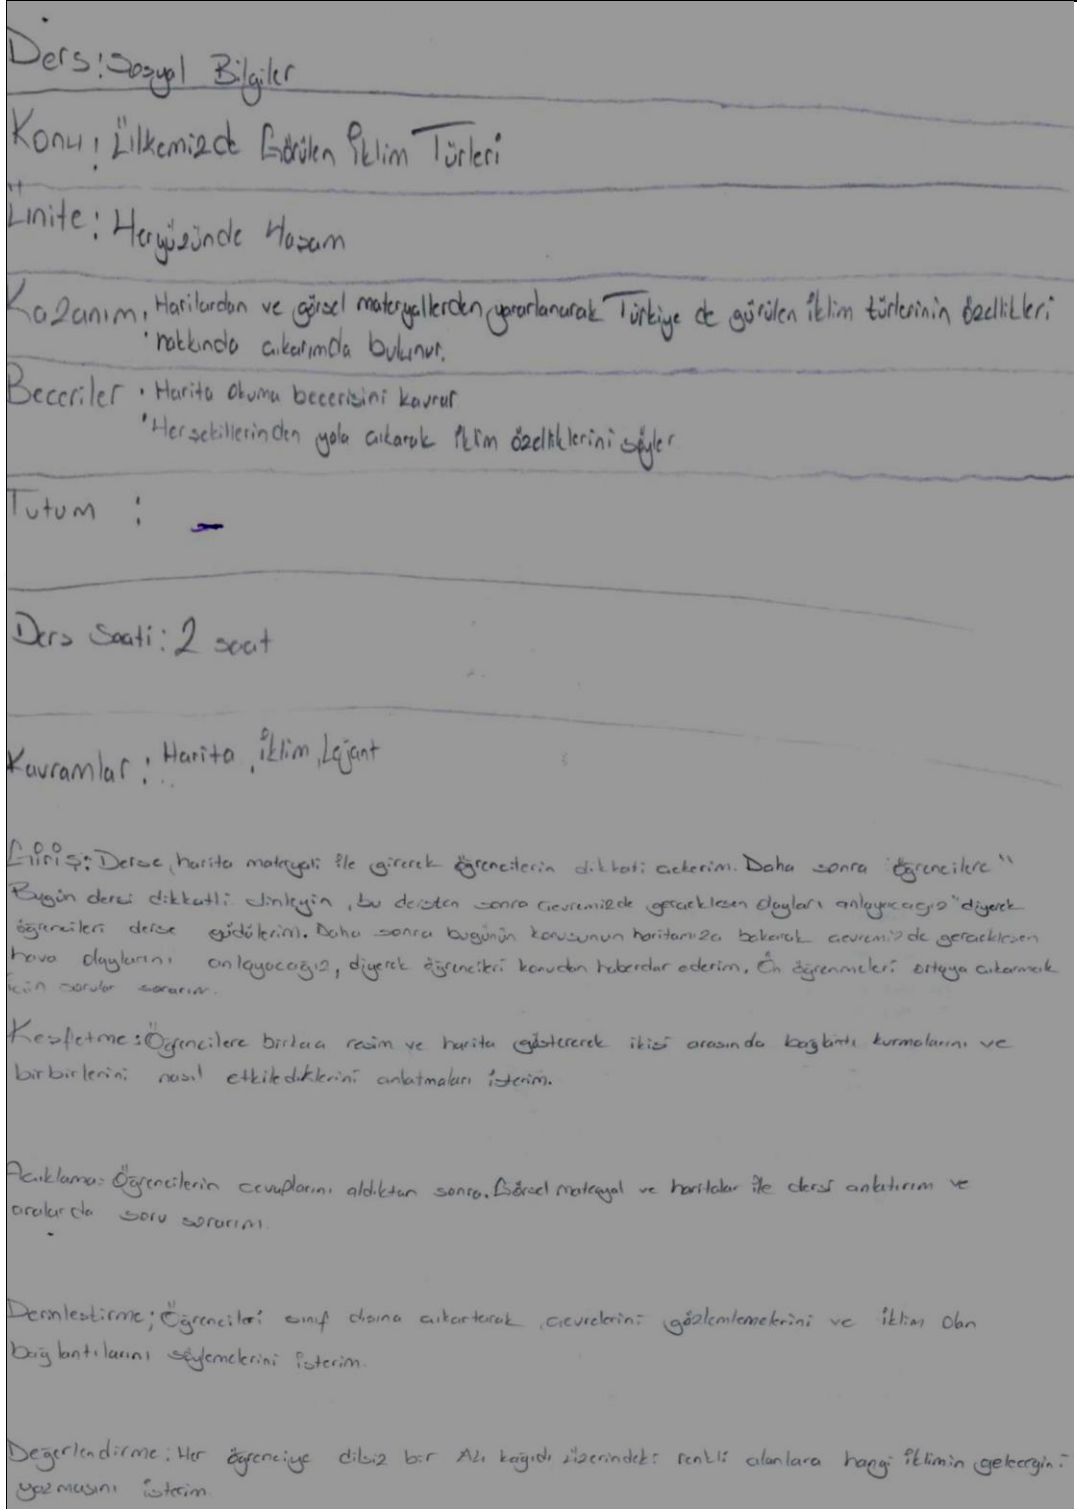 Ders: Sosyal Bilgiler
Konu: Ülkemizde Görülen İklim Türleri
Ünite: Yeryüzünde Yaşam
Kazanım. Haritalardan ve görsel materyallerden yararlanarak Türkiye de görülen iklim türlerinin özellikleri
hakkında cıkarımda bulunur.
Beceriler • Harita Okuma becerisini kavrar
• Yersekillerinden yola cıkarak iklim özelliklerini söyler
Tutum : -
Ders Saati: 2 saat
Kavramlar: Harita, İklim, Lejant
Giriş: Derse, harita materyali ile girerek öğrencilerin dikkati cekerim. Daha sonra öğrencilere "
Bugün dersi dikkatli dinleyin, bu dersten sonra cevremizde gerceklesen olayları anlayacagız" diyerek
öğrencileri derse güdülerim. Daha sonra bugünün konusunun haritamıza bakarak cevremizde gerceklesen
hava olaylarını anlayacağız, diyerek öğrencileri konudan haberdar ederim. Ön öğrenmeleri ortaya cıkarmak
icin sorular sorarım.
Kesfetme: Öğrencilere birkac resim ve harita göstererek ikisi arasında bağlantı kurmalarını ve
birbirlerini nasıl etkilediklerini anlatmaları isterim.
Acıklama: Öğrencilerin cevaplarını aldıktan sonra. Görsel materyal ve haritalar ile dersi anlatırım ve
aralarda soru sorarım
Derinlestirme; Öğrencileri sınıf dısına cıkartarak cevrelerini gözlemlemelerini ve iklim olan
bağlantılarını söylemelerini isterim.
Değerlendirme: Her öğrenciye dilsiz bir A4 kağıdı üzerindeki renkli alanlara hangi iklimin gelecegini
yazmasını isterim